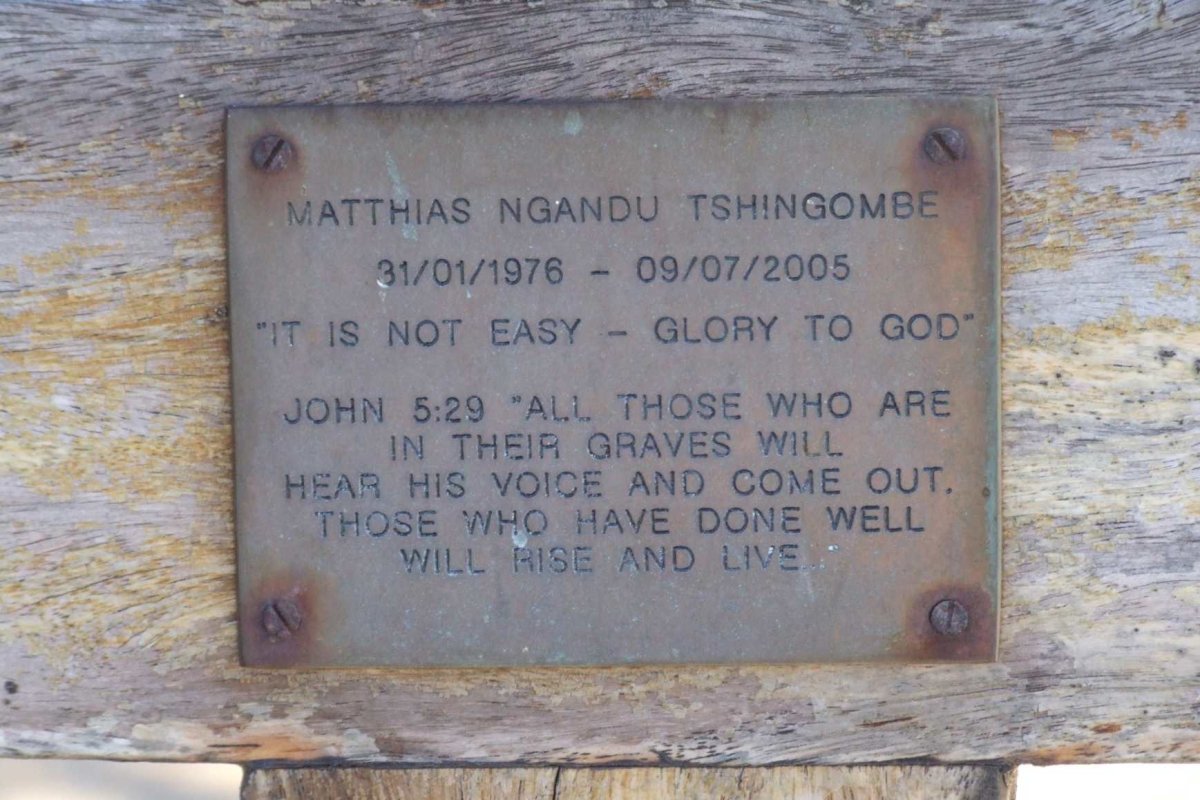 MATTHIAS NGANDU TSHINGOMBE
31/01/1976 – 09/07/2005
"IT IS NOT EASY – GLORY TO GOD"
JOHN 5:29 "ALL THOSE WHO ARE
IN THEIR GRAVES WILL
HEAR HIS VOICE AND COME OUT.
THOSE WHO HAVE DONE WELL
WILL RISE AND LIVE...